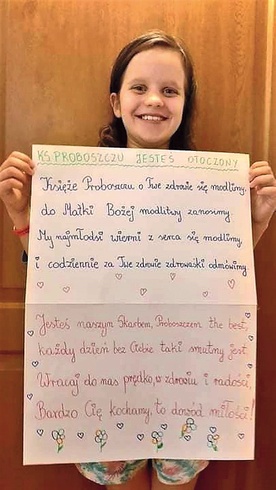 KS. PROBOSZCZU JESTEŚ OTOCZONY
Księże Proboszczu o Twe zdrowie się modlimy,
do Matki Bożej modlitwy zanosimy.
My najmłodsi wierni z serca się modlimy,
i codziennie za Twe zdrowie zdrowaśki odmówimy.
Jesteś naszym Skarbem, Proboszczem the best,
każdy dzień bez Ciebie taki smutny jest.
Wracaj do nas prędko, w zdrowiu i radości,
Bardzo Cię kochamy, to dowód miłości!